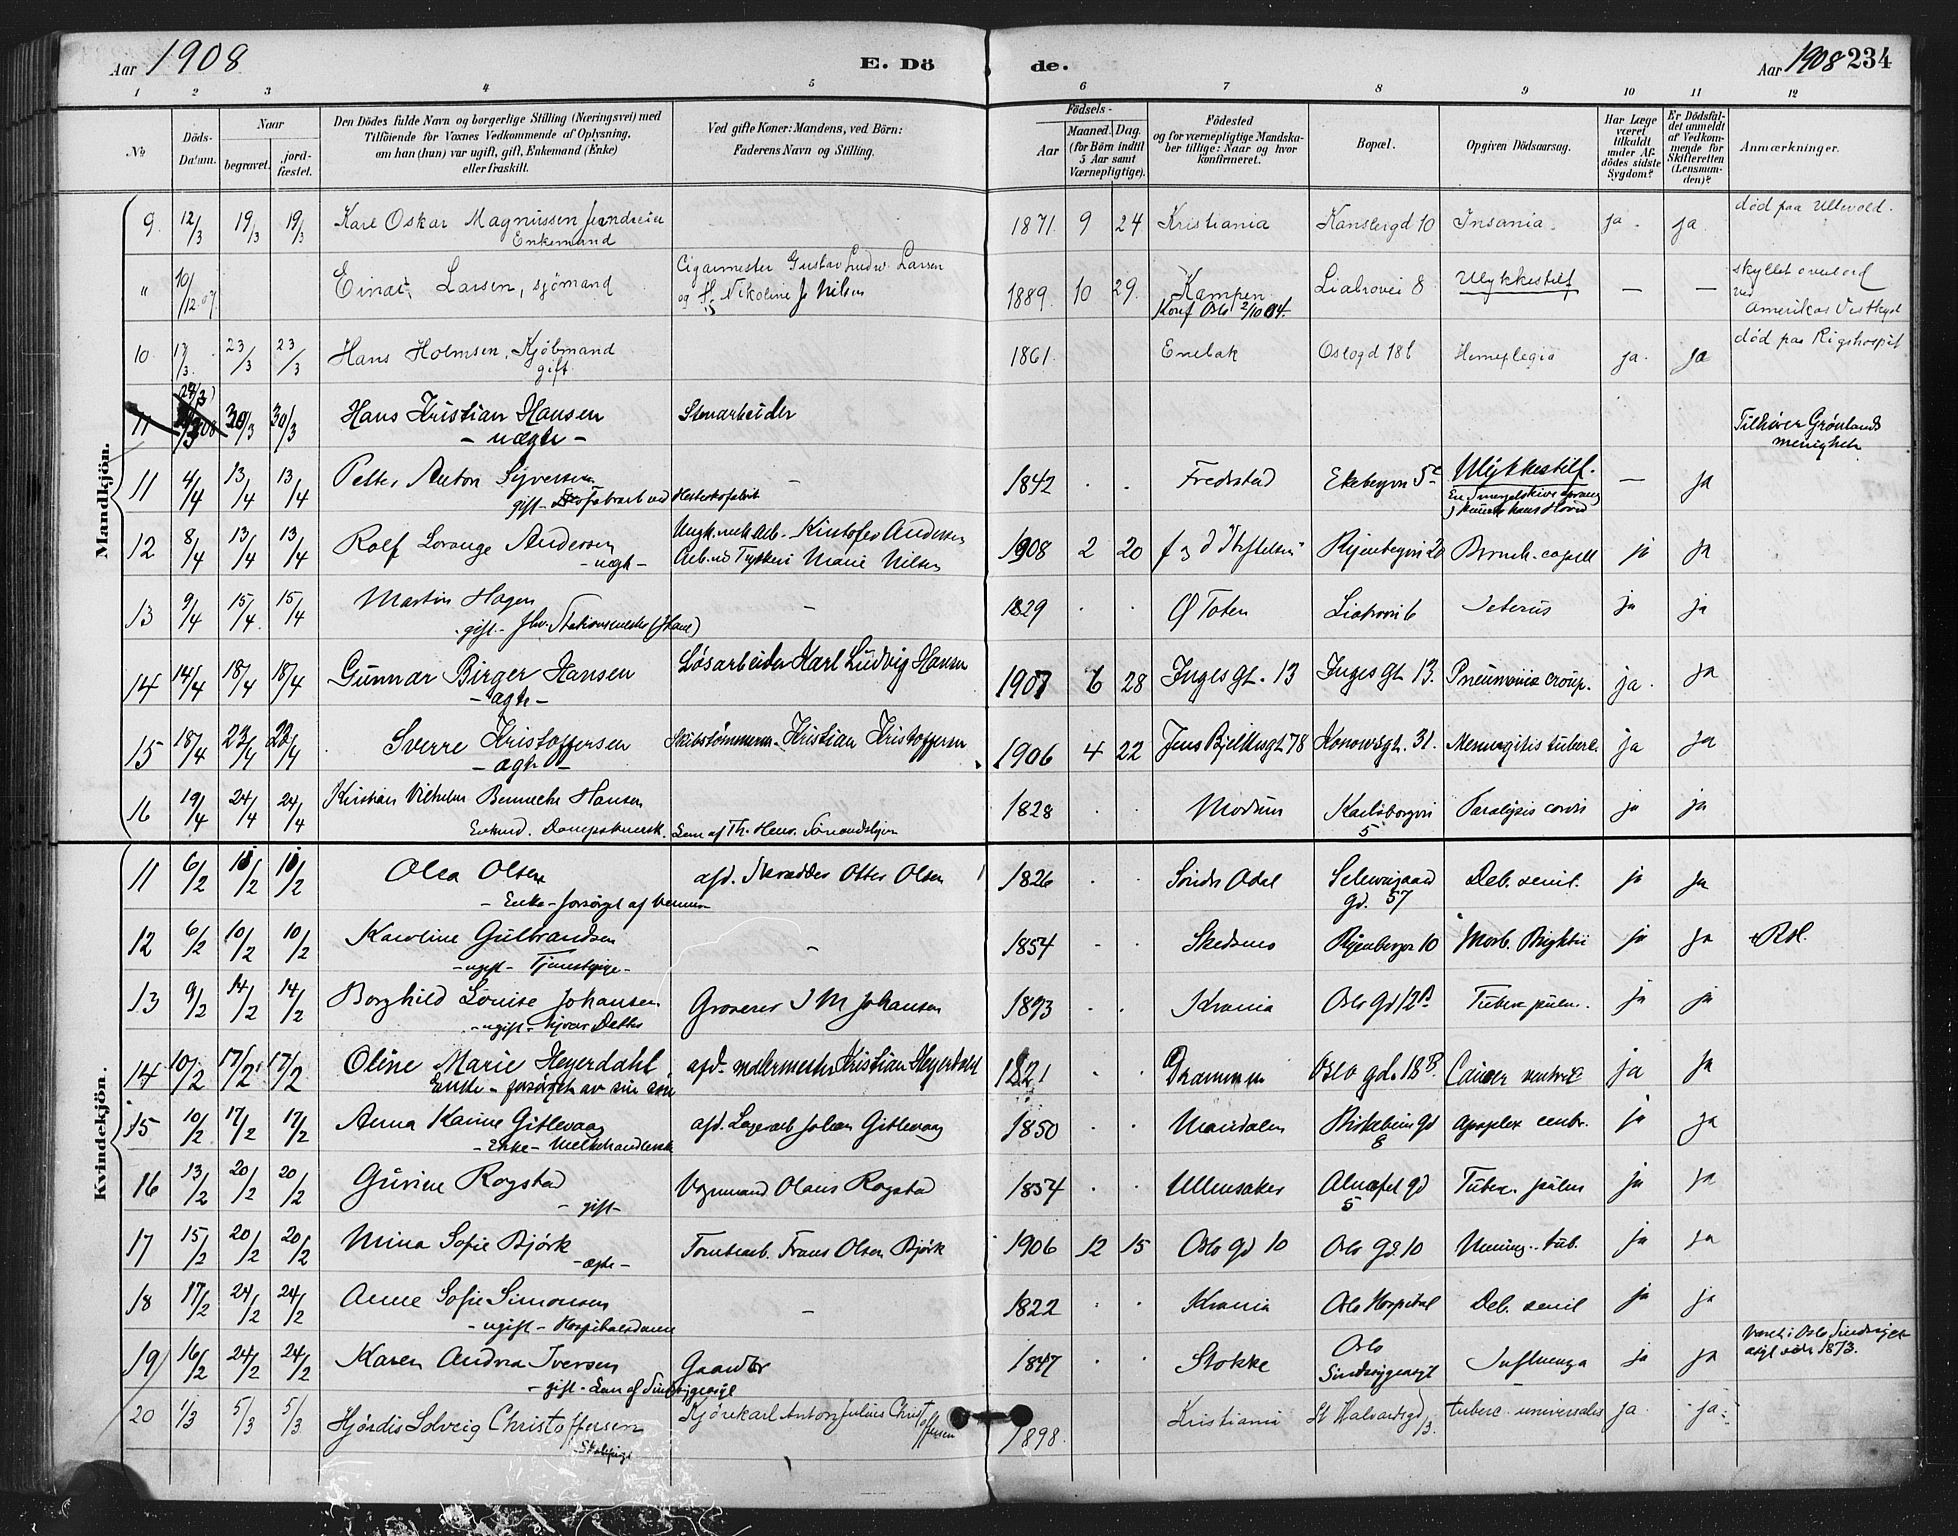 Aar 1908 E. Dö de. Aar 1908 234
1 2 3 4 5 6 7 8 9 10 11 12
No
Döds-Datum.
Naar
begravet.
jord-fæstet.
Den Dödes fulde Navn og borgerlige Stilling (Næringsvei) med
Tilföiende for Voxnes Vedkommende af Oplysning,
om han (hun) var ugift, gift, Enkemand (Enke)
eller fraskilt.
Ved gifte Koner: Mandens, ved Börn:
Faderens Navn og Stilling.
Födsels-
Aar
Maaned. Dag.
(for Börn indtil
5 Aar samt
Værnepligtige).
Födested
og for værnepligtige Mandska-
ber tillige: Naar og hvor
konfirmeret.
Bopæl.
Opgiven Dödsaarsag.
Har Læge
været
tilkaldt
under Af-
dödes sidste
Sygdom?
Er Dödsfal-
det anmeldt
af Vedkom-
mende for
Skifteretten
(Lensman-
den)?
Anmærkninger.
Mandkjön.
9 12/3 19/3 19/3 Karl Oskar Magnussen 1871 9 24 Kristiania 10 Insania ja ja død paa Ullevold.
Enkemand
" 10/12.07 Einar Larsen, sjömand Cigarmester Gustav Ludv. Larsen 1889 10 29 Kampen Liabrovei 8 Ulykkestilf — — skyllet overbord
og Nikoline J Nilsen Konf Oslo 2/10 04. ved
Amerikas Vestkyst
10 23/3 23/3 Hans Holmsen, Kjöbmand 1861 Enebak Oslogd 18b Hemeplegia ja ja død paa Rigshospit
gift
11 30/3 30/3 Hans Kristian Hansen Stenarbeider Tilhører Grönlands
- uægte - menighet
11 4/4 13/4 13/4 Petter Anton Syversen - 1842 . . Fredrstad Ekebergvn 5c Ulykkestilf. — ja
gift - ved Hesteskofabrik
12 8/4 13/4 13/4 Rolf Lorange Andersen Kristofer Andersen 1908 2 20 Ryenbergvn 20 Bronch. capill ja ja
- uægte - Marie Nilsen
13 9/4 15/4 15/4 Martin Hagen - 1829 . . Ø Toten Liabrovn 6 Icterus ja ja
gift - fhv. Stationsmester
14 14/4 18/4 18/4 Gunnar Birger Hansen Løsarbeider Karl Ludvig Hansen 1907 6 28 Inges Gt. 13 Inges Gt 13. Pneumonia croup. ja ja
- ægte -
15 18/4 23/4 23/4 Sverre Kristoffersen Skibstømmerm. Kristian Kristoffersen 1906 4 22 Jens Bjelkesgt 78 Konowsgt. 31. Meningitis tuberc. ja ja
- ægte -
16 19/4 24/4 24/4 Kristian Vilhelm Bennecke Hansen 1828 . . Modum Karlsborgvn Paralysis cordis ja ja
5
Kvindekjön.
11 6/2 10/2 10/2 Olea Olsen afd. Skrædder Otter Olsen 1826 . . Søndr Odal 57 Deb. senil. ja ja
- Enke - forsørget af
12 6/2 10/2 10/2 Karoline Gulbrandsen - 1854 . . Skedsmo Ryenbergvn 10 Morb. Brightii ja ja
- ugift - Tjenestepige -
13 9/2 14/2 14/2 Borghild Louise Johansen Grosserer J M Johansen 1893 . . Krania Oslo Gd 12B Tuberc. pulm. ja ja
- ugift - hjvær. Datter
14 10/2 17/2 17/2 Oline Marie Heyerdahl afd. Møllermester Kristian Heyerdahl 1821 Drammen Oslo gd. 18B. Cancer ventric ja ja
Enke - forsørget av sin søn
15 10/2 17/2 17/2 Anna Karine Gitlevaag afd. Lagerarb Johan Gitlevaag 1850 . . Mandalen Birkebein Gd Apoplex cerebr. ja ja
- Enke - Melkehandlerske 8
16 13/2 20/2 20/2 Gurine Rogstad Vognmand Olaus Rogstad 1854 . . Ullensaker Alnafet gd Tuberc. pulm ja ja
- gift - 5
17 15/2 20/2 20/2 Mina Sofie Bjørk Tomtearb. Frans Olsen Bjørk 1906 12 15 Oslo Gd 10 Oslo Gd 10 Mening. tub. ja ja
- ægte -
18 17/2 24/2 24/2 Anne Sofie Simonsen - 1822 . . Krania Oslo Hospital Deb. senil ja ja
- ugift - Hospitalsdame
19 16/2 24/2 24/2 Karen Andrea Iversen Gaardbr 1847 Stokke Oslo Influenza ja ja Været i Oslo Sindssyge-
- gift - Lem af Sindssygeasyl Sindssygeasyl asyl siden 1873.
20 1/3 5/3 5/3 Hjördis Solveig Christoffersen Kjørekarl Anton Julius Christoffersen 1898 Kristiania St Halvardsgd 13 tuberc. universalis ja ja
Skolepige